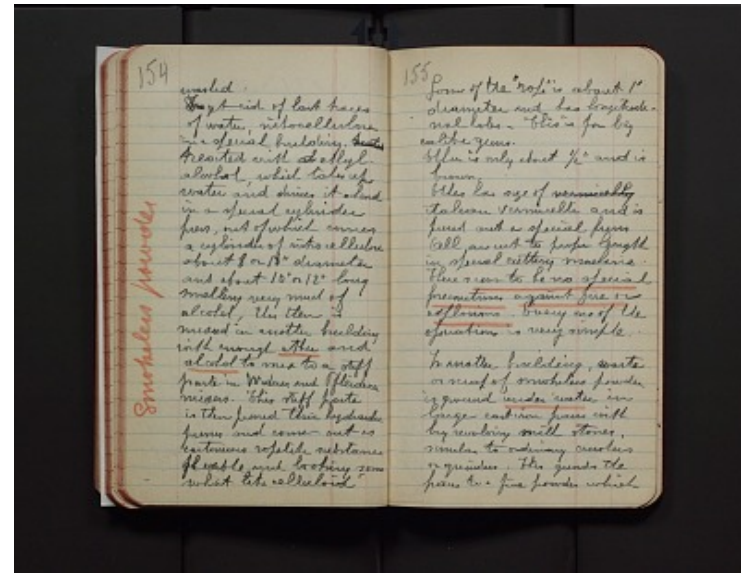 154
washed.
To get rid of last traces
of water, nitrocellulose
in a special building,
treated with ethyl
alcohol, which takes up
water and drives it ahead
in a special cylinder
press, out of which comes
a cylinder of nitrocellulose
about 8 or 10" diameter
and about 10" or 12" long
smelling very much of
alcohol, this then is
mixed in another building
with enough ether and
alcohol to mix to a stiff
paste in Werner and Pfleiderer
mixers. This stiff paste
is then forced thru hydraulic
presses and comes out as
continuous ropelike substance
flexible and looking some
what like celluloid
Smokeless powder
155
Some of the "rope" is about 1"
diameter and has longitudi-
nal holes - this is for big
calibre guns.
Other is only about 1/2" and is
brown.
Other has size of
Italian vermicelli and is
forced out a special press
All are cut to proper length
in special cutting machine.
There seem to be no special
precautions against fire or
explosions. Every one of the
operations is very simple.
In another building, waste
or scrap of smokeless powder
is ground under water in
large cast iron pans with
big revolving mill stones,
similar to ordinary crushers
or grinders. This grinds the
paste to a fine powder which